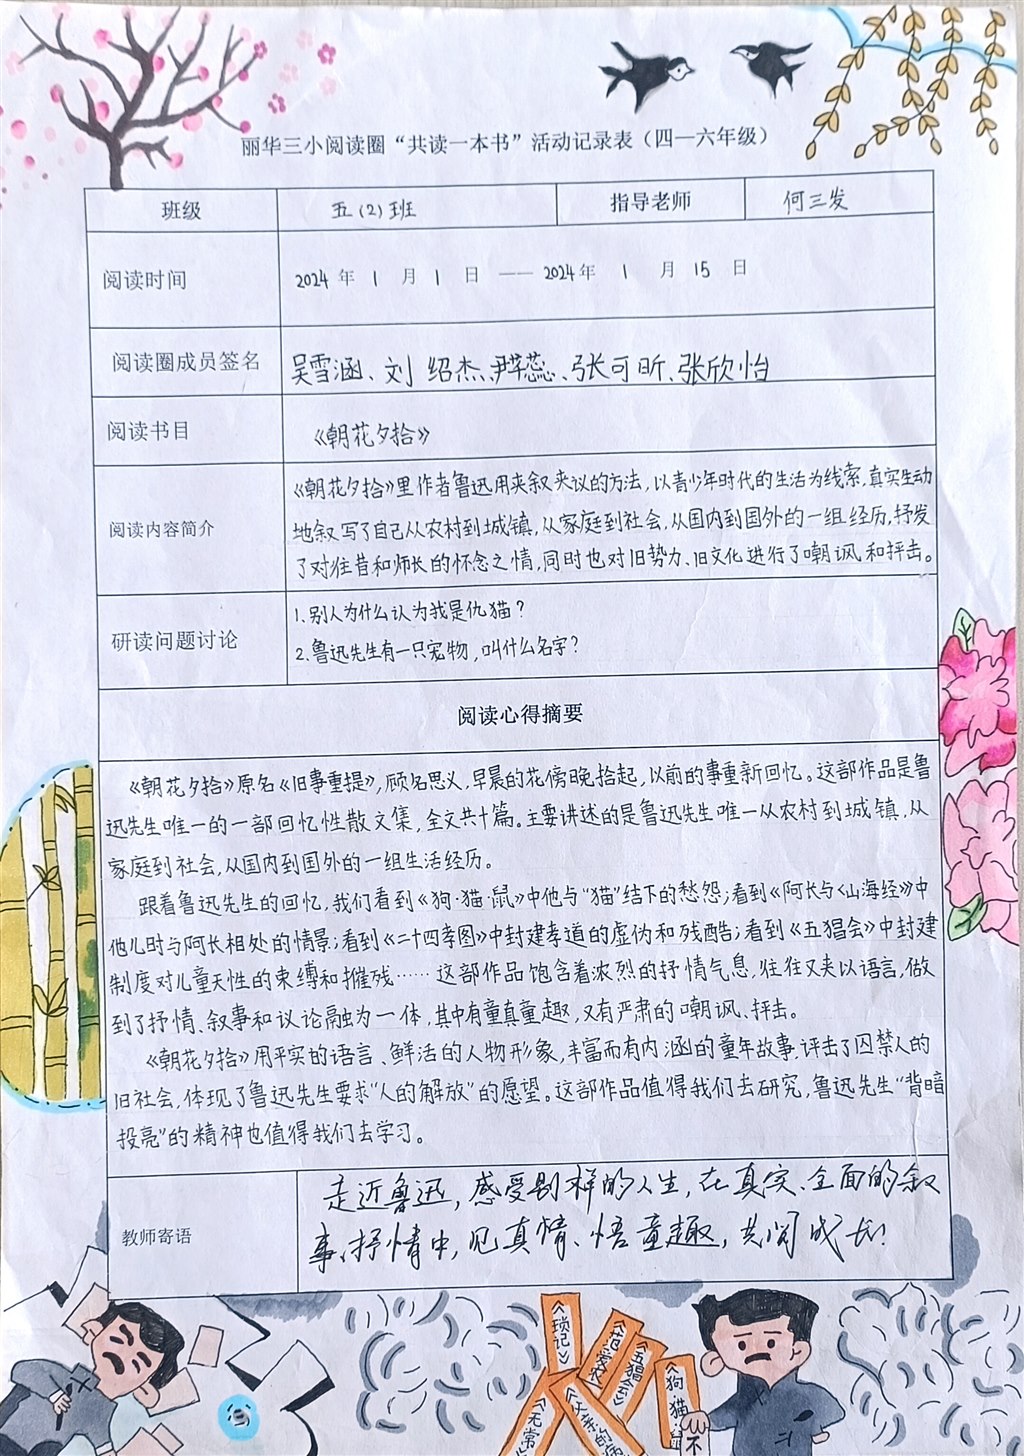 丽华三小阅读圈“共读一本书”活动记录表（四—六年级）
班级 五（2）班 指导老师 何三发
阅读时间 2024 年 1 月 1 日 —— 2024年 1 月 15 日
阅读圈成员签名 吴雪涵、刘绍杰、尹莘蕊、张可昕、张欣怡
阅读书目 《朝花夕拾》
《朝花夕拾》里作者鲁迅用夹叙夹议的方法，以青少年时代的生活为线索，真实生动
阅读内容简介 地叙写了自己从农村到城镇，从家庭到社会，从国内到国外的一组经历，抒发
了对往昔和师长的怀念之情，同时也对旧势力、旧文化进行了嘲讽和抨击。
1.别人为什么认为我是仇猫？
研读问题讨论
2.鲁迅先生有一只宠物，叫什么名字？
阅读心得摘要
《朝花夕拾》原名《旧事重提》，顾名思义，早晨的花傍晚拾起，以前的事重新回忆。这部作品是鲁
迅先生唯一的一部回忆性散文集，全文共十篇。主要讲述的是鲁迅先生唯一从农村到城镇，从
家庭到社会，从国内到国外的一组生活经历。
跟着鲁迅先生的回忆，我们看到《狗·猫·鼠》中他与“猫”结下的愁怨；看到《阿长与《山海经》》中
他儿时与阿长相处的情景；看到《二十四孝图》中封建孝道的虚伪和残酷；看到《五猖会》中封建
制度对儿童天性的束缚和摧残……这部作品饱含着浓烈的抒情气息，往往又夹以语言，做
到了抒情、叙事和议论融为一体，其中有童真童趣，又有严肃的嘲讽、抨击。
《朝花夕拾》用平实的语言、鲜活的人物形象，丰富而有内涵的童年故事评击了囚禁人的
旧社会，体现了鲁迅先生要求“人的解放”的愿望。这部作品值得我们去研究，鲁迅先生“背暗
投亮”的精神也值得我们去学习。
走近鲁迅，感受别样的人生，在真实、全面的叙
教师寄语
事、抒情中，见真情、悟童趣，共阅成长！
《琐记》
《范爱农》
《五猖会》
《狗·猫·鼠
《父亲的病
《无常》
不